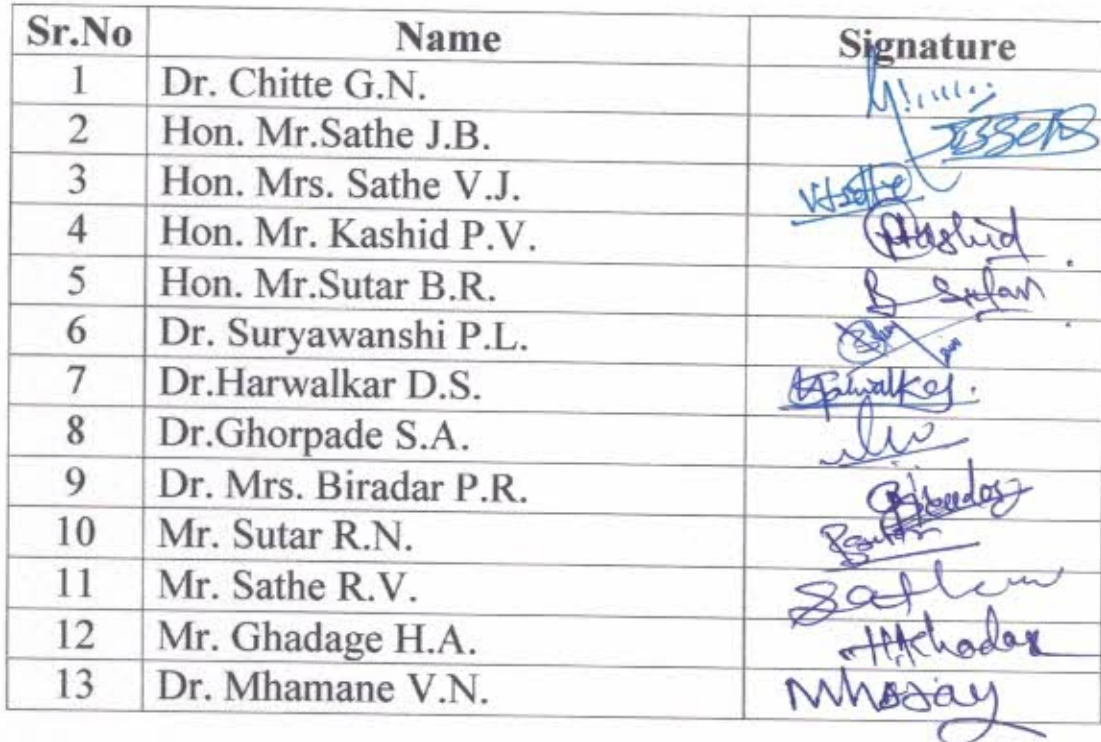 Sr.No Name Signature
1 Dr. Chitte G.N.
2 Hon. Mr.Sathe J.B.
3 Hon. Mrs. Sathe V.J. VJSathe
4 Hon. Mr. Kashid P.V. PKashid
5 Hon. Mr.Sutar B.R. B Sutar
6 Dr. Suryawanshi P.L.
7 Dr.Harwalkar D.S. Harwalkar
8 Dr.Ghorpade S.A.
9 Dr. Mrs. Biradar P.R.
10 Mr. Sutar R.N. RSutar
11 Mr. Sathe R.V.
12 Mr. Ghadage H.A.
13 Dr. Mhamane V.N.